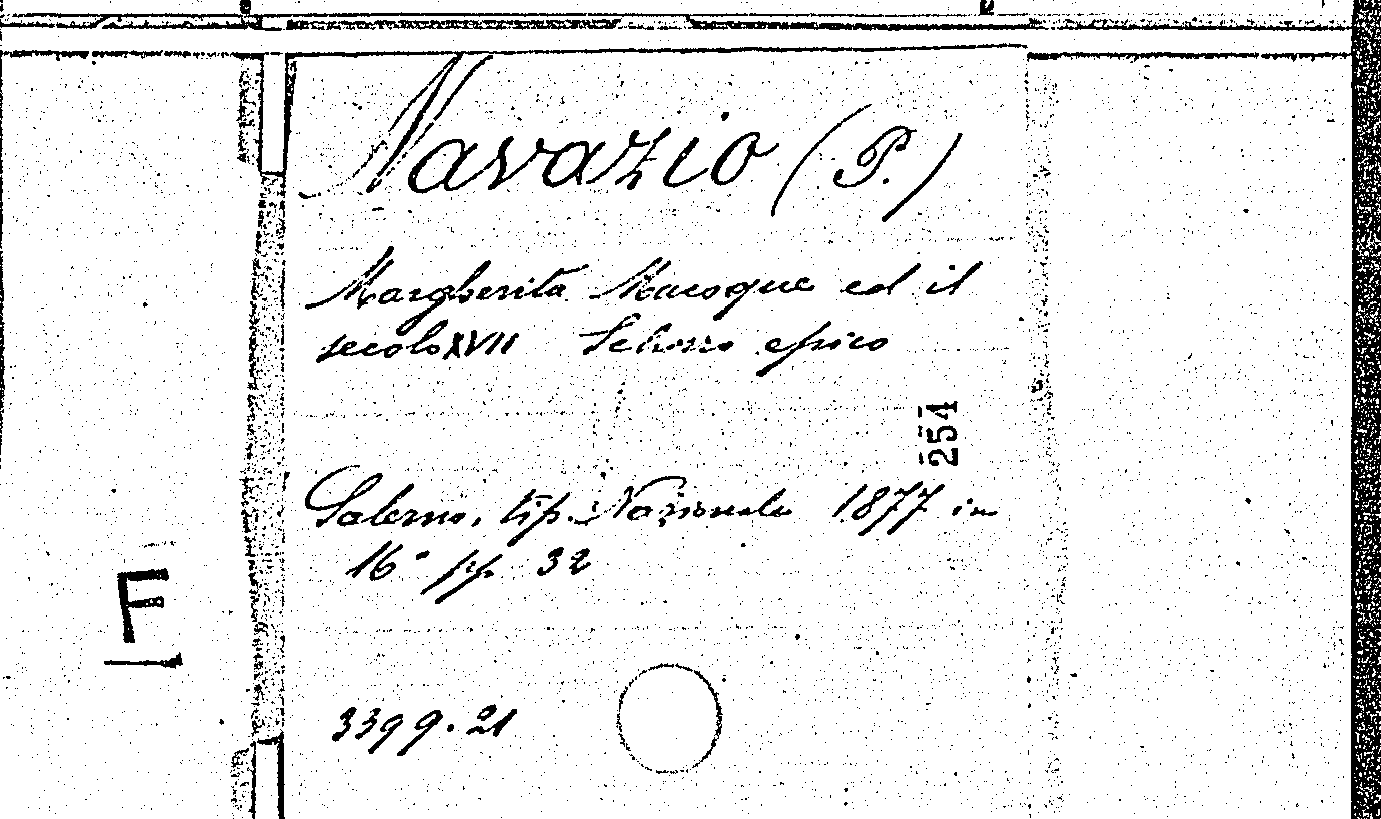 Navazio (P.)
Margherita Macoque ed il
secolo XVII Scherzo epico
254
Salerno, tip. Nazionale 1877 in
16° pp. 32
F
3399.21